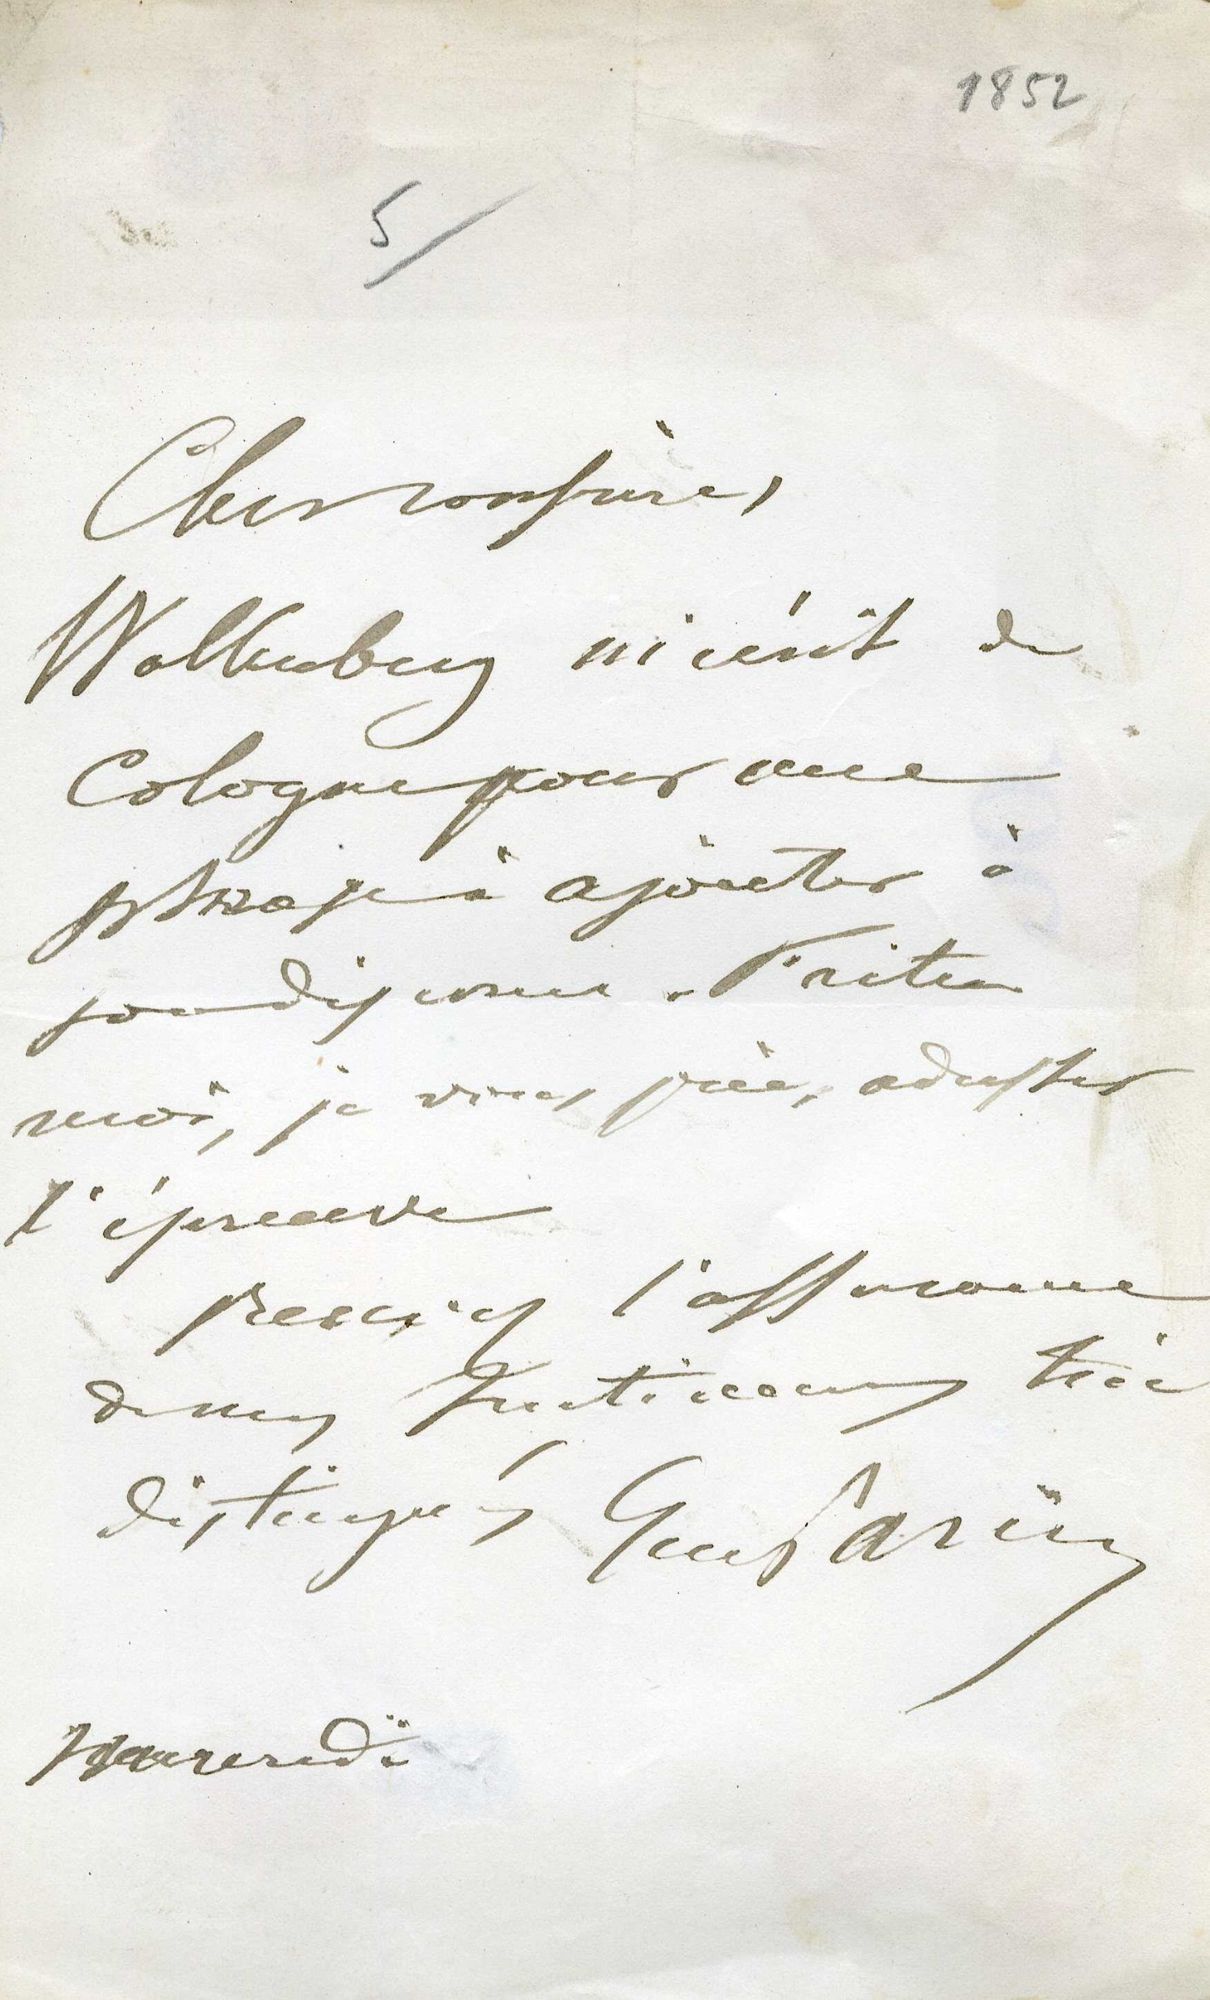 1852
5/
Cher confrère,
m'écrit de
Cologne pour une
phrase à ajouter à
son discours. Faites
moi, je vous prie, adresser
l'épreuve
Recevez l'assurance
de mes sentiments très
distingués
mercredi